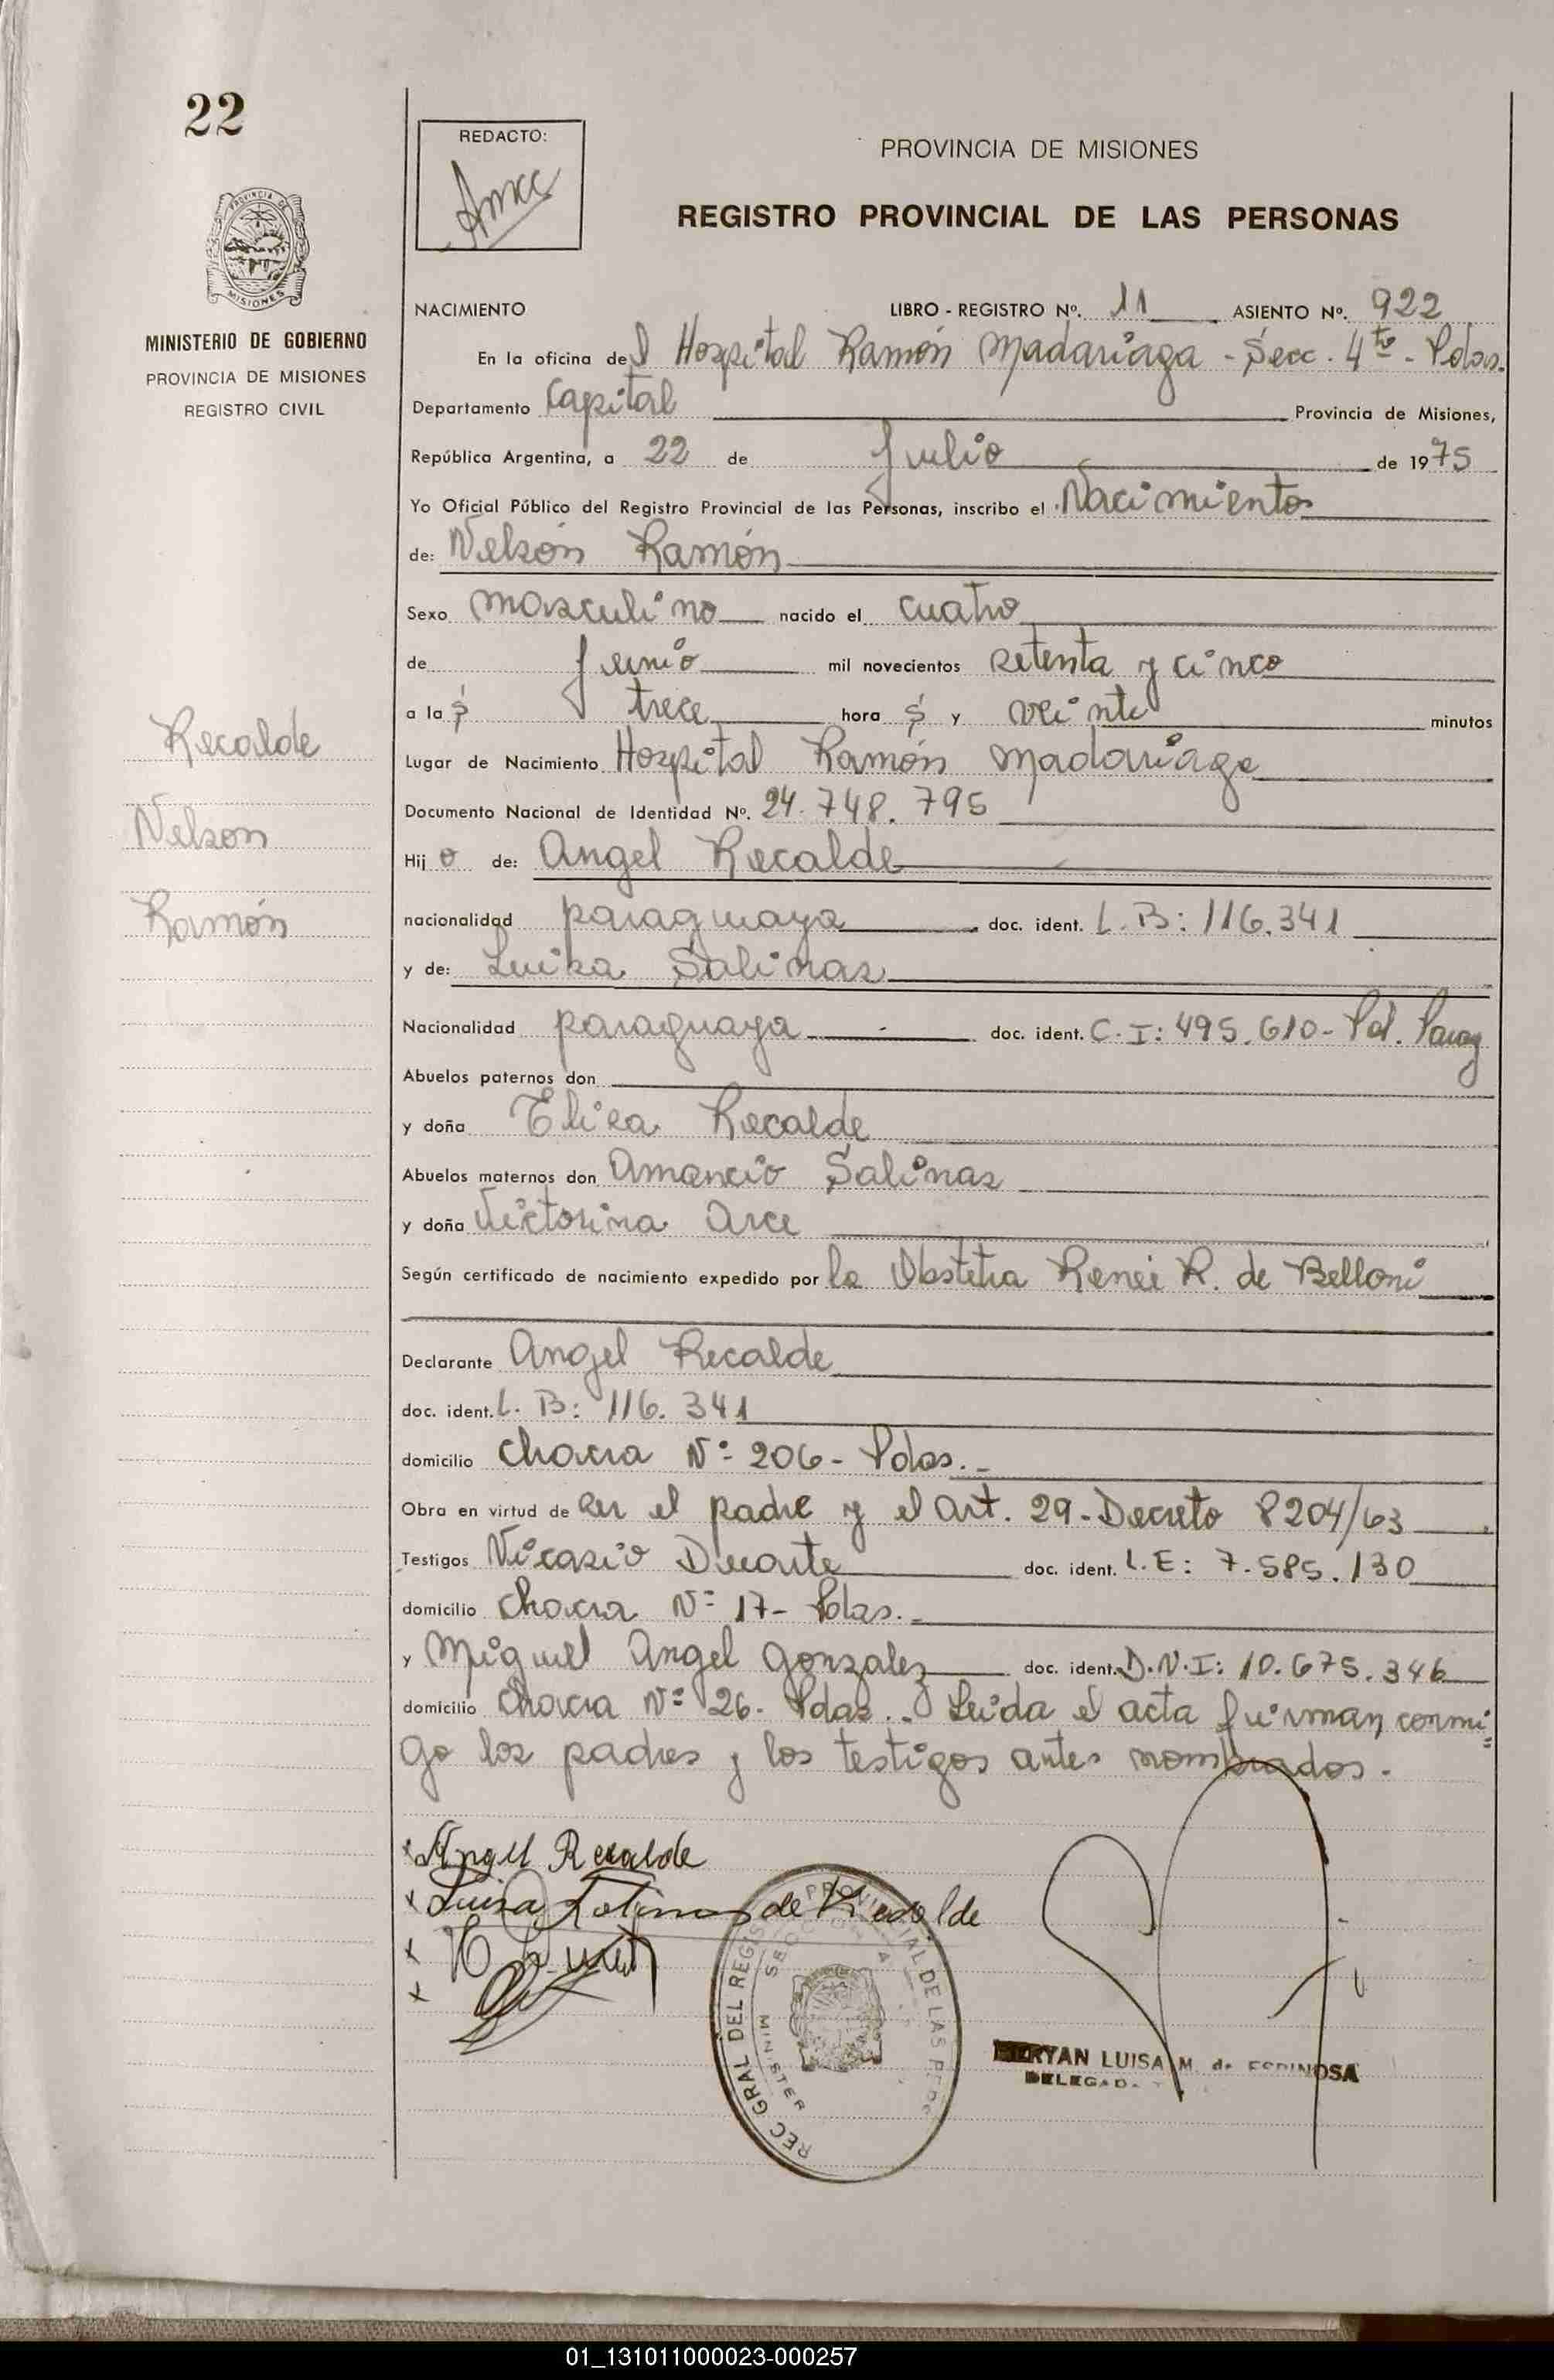 22
REDACTO:
PROVINCIA DE MISIONES
REGISTRO PROVINCIAL DE LAS PERSONAS
PROVINCIA DE
MISIONES
MINISTERIO DE GOBIERNO
PROVINCIA DE MISIONES
REGISTRO CIVIL
NACIMIENTO LIBRO - REGISTRO Nº. 11 ASIENTO Nº. 922
En la oficina del Hospital Ramón Madariaga - Secc. 4ta - Pdas.
Departamento Capital Provincia de Misiones,
República Argentina, a 22 de Julio de 1975
Yo Oficial Público del Registro Provincial de las Personas, inscribo el Nacimiento
de: Nelsón Ramón
Sexo masculino nacido el cuatro
de Junio mil novecientos setenta y cinco
a las trece horas y veinte minutos
Lugar de Nacimiento Hospital Ramón Madariaga
Documento Nacional de Identidad Nº. 24.748.795
Hijo de: Angel Recalde
nacionalidad paraguaya doc. ident. L.B: 116.341
y de: Luisa Salinas
Nacionalidad paraguaya doc. ident. C.I: 495.610- Pol. Parag
Abuelos paternos don
y doña Elisa Recalde
Abuelos maternos don Amancio Salinas
y doña Victorina Arce
Según certificado de nacimiento expedido por la Obstetra Renei R. de Belloni
Declarante Angel Recalde
doc. ident. L.B: 116.341
domicilio Chacra Nº 206- Pdas.-
Obra en virtud de ser el padre y el art. 29-Decreto 8204/63
Testigos Nicasio Duarte doc. ident. L.E: 7.585.130
domicilio Chacra Nº 17- Pdas.-
y Miguel Angel Gonzalez doc. ident. D.N.I: 10.675.346
domicilio Chacra Nº 26- Pdas.- Leida el acta firman conmi=
go los padres y los testigos antes nombrados.-
Recalde
Nelson
Ramón
x Angel Recalde
x Luisa Salinas de Recalde
x
x
REG GRAL DEL REGIS PROVINCIAL DE LAS PERS
SECC
MINISTER
LUISA M. de ESPINOSA
DELEGAD
01_131011000023-000257